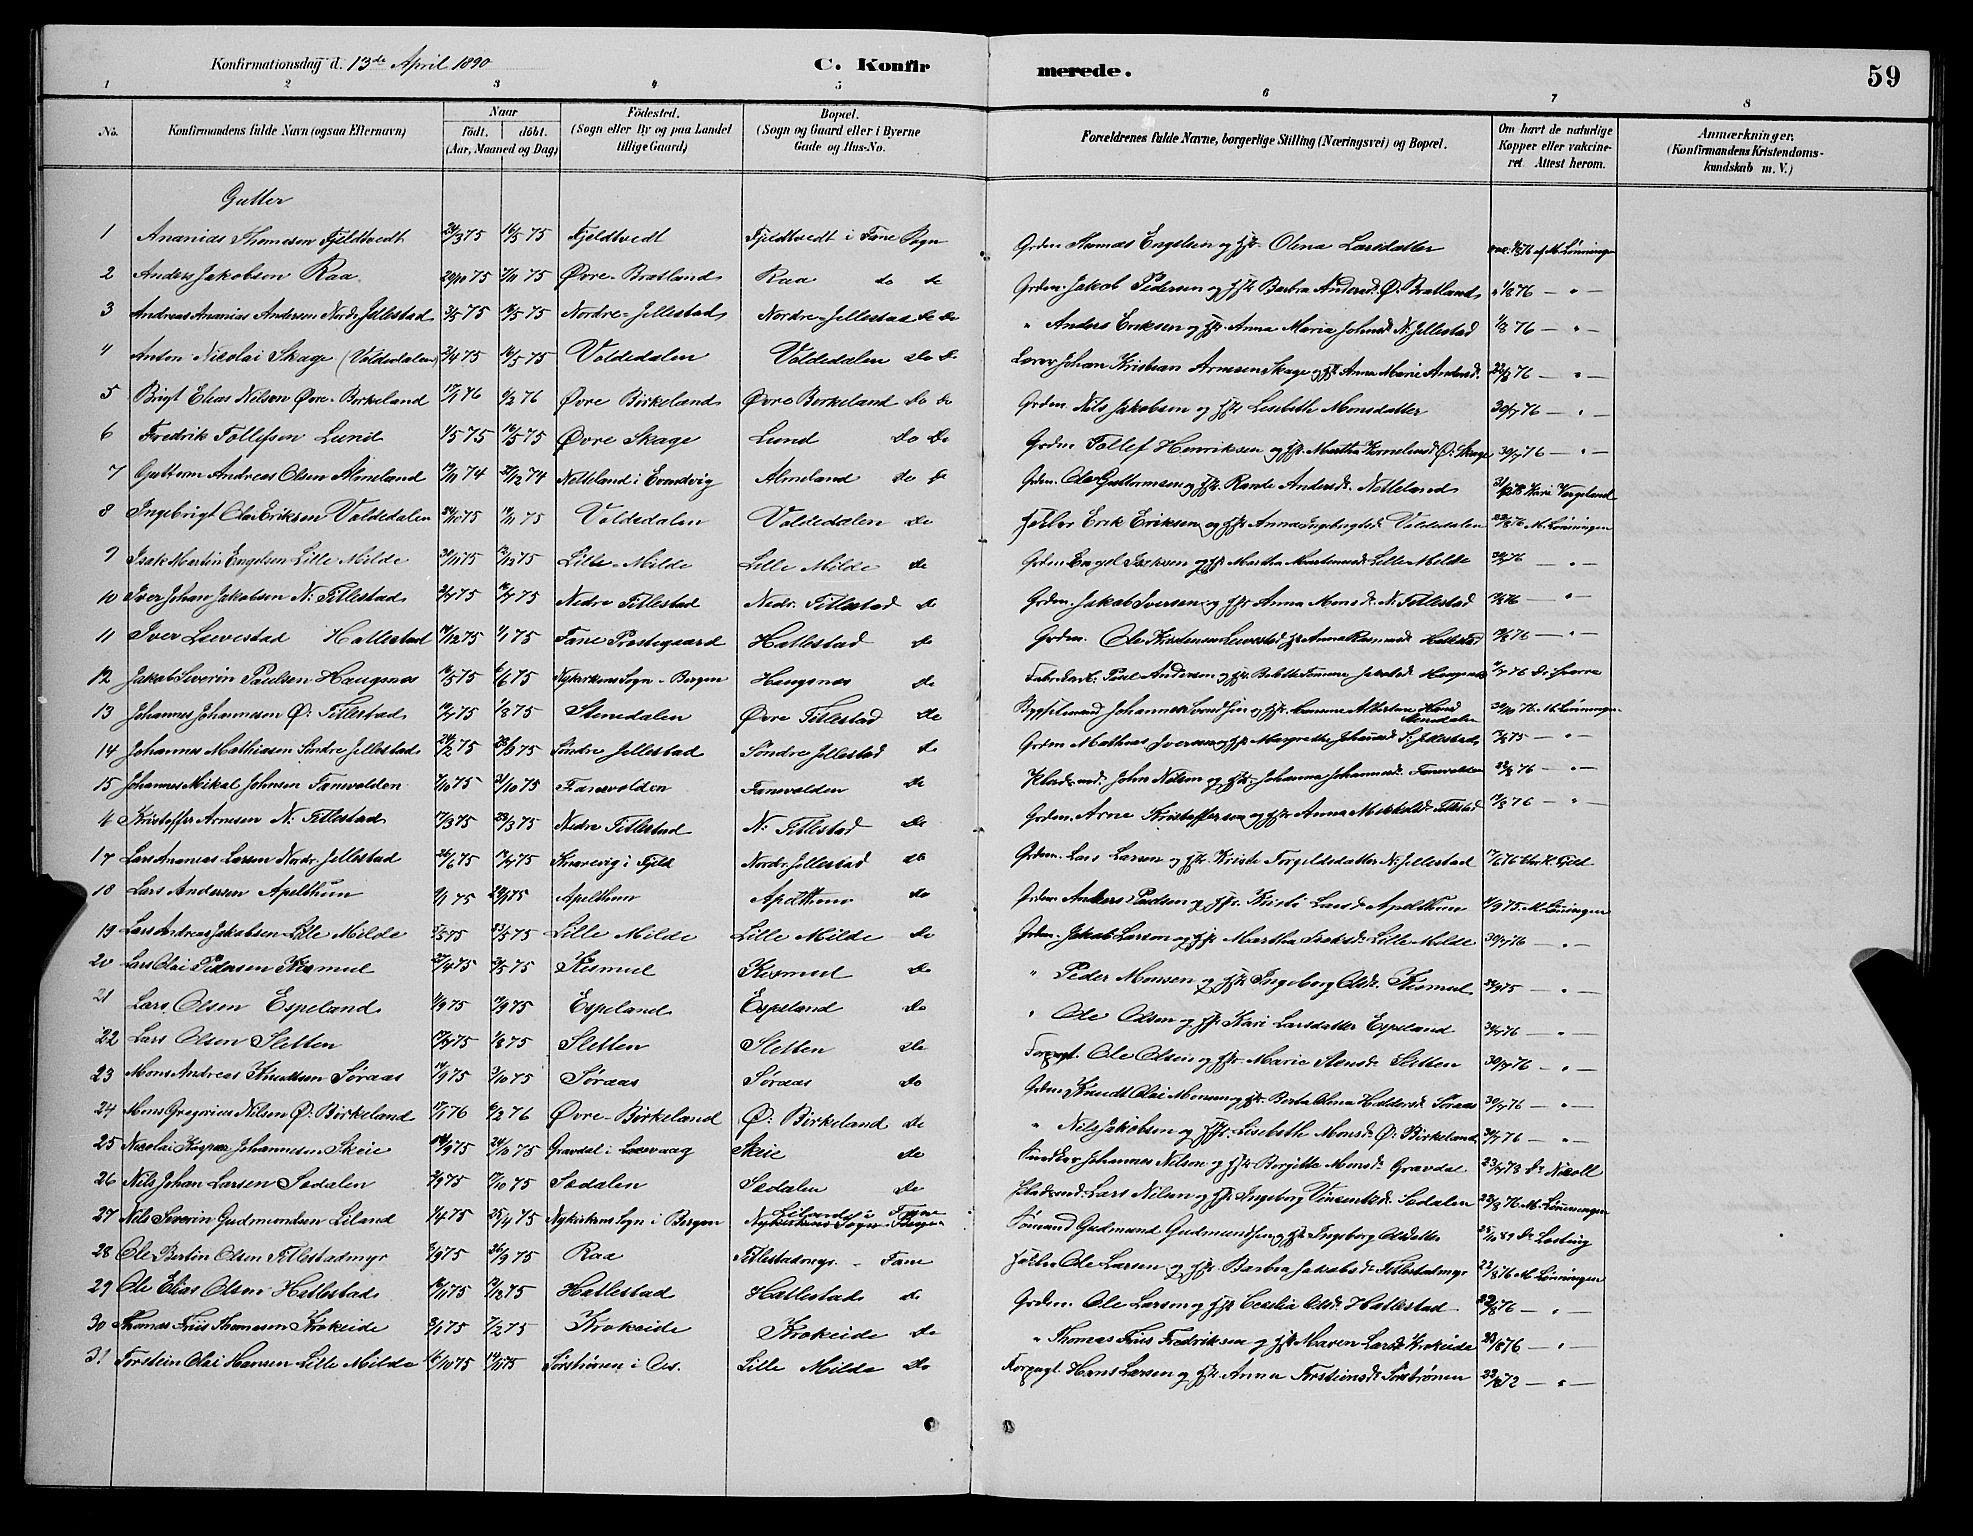 Konfirmationsdag d. 13de April 1890
C. Konfirmerede.
59
1 2 3 4 5 6 7 8
No. Konfirmandens fulde Navn (ogsaa Efternavn) Naar födt. döbt. (Aar, Maaned og Dag) Födested. (Sogn eller By og paa Landet tillige Gaard) Bopæl. (Sogn og Gaard eller i Byerne Gade og Hus-No. Forældrenes fulde Navne, borgerlige Stilling (Næringsvei) og Bopæl. Om havt de naturlige Kopper eller vakcineret Attest herom. Anmærkninger. (Konfirmandens Kristendomskundskab m. V.)
Gutter
1 Ananias Thomesen Fjeldtvedt 16/5 75 Fjeldtvedt Fjeldtvedt i Fane Sogn Grdm Thomas Engelsen og Hst. Olena Larsdatter
2 Anders Jakobsen Raa 29/10 75 7/11 75 Øvre-Bratland Raa do do Grdm. Jakob Pedersen og Hst. Barbra Andersd. Ø. Bratland
3 Andreas Ananias Andersen Nordr. Jellestad 16/5 75 Nordre-Jellestad Nordre-Jellestad do do " Anders Eriksen og Hst. Anna Maria Johnsd. N. Jellestad 1/8 76 — " —
4 Anton Nicolai Skage (Voldedalen) 2/4 75 16/5 75 Voldedalen Voldedalen do do Lærer Johan Kristian Arnesen Skage og Hst. Anna Marie Andersd. 22/8 76 — " —
5 Brigt Elias Nilsen Øvre-Birkeland 17/1 76 6/2 76 Øvre Birkeland Øvre Birkeland do do Grdm. Nils Jakobsen og Hst. Lisebeth Monsdatter 30/7 76 — " —
6 Fredrik Tollefsen Lund 1/5 75 16/5 75 Øvre Skage Lund do do Grdm Tollef Henriksen og Hst. Martha Korneliusd. Ø. Skage 30/7 76 — " —
7 Guttorm Andreas Olsen Almeland 27/12 74 Netteland i Evindvig Almeland do do Grdm. Ole Guttormsen og Hst. Rande Andersd. Netteland
8 Ingebrigt Olai Eriksen Voldedalen 24/10 75 Voldedalen Voldedalen do Erik Eriksen og Hst. Anna Ingebrigtsd. Voldedalen 22/8 76 M. Lönningen
9 Isak Martin Engelsen Lille Milde 30/11 75 Lille-Milde Lille Milde do Grdm Engel Isaksen og Hst. Martha Mortensd. Lille Milde 30/7 76 — " —
10 Iver Johan Jakobsen N. Titlestad Nedre Titlestad Nedr. Titlestad do Grdm. Jakob Iversen og Hst. Anna Monsd. N. Titlestad — " —
11 Iver Lævestad Hatlestad Fane Prestegaard Hatlestad do Grdm. Ole Kristensen Lævestad Hst. Anna Rasmusd. Hatlestad — " —
12 Jakob Severin Paulsen Haugsnæs 16/5 75 6/6 75 Nykirkens Sogn - Bergen Haugsnæs do Poul Andersen og Hst.
13 Johannes Johannesen Ø. Titlestad 1/8 75 Stenedalen Øvre Titlestad do Bygselmand Johannes Stenedalen 30/10 76 M. Lönningen
14 Johannes Mathiasen Söndre Jellestad 24/2 75 28/3 75 Söndre Jellestad Söndre Jellestad do Grdm Mathias Iversen og Hst. Margrethe Johannesd. S. Jellestad — " —
15 Johannes Mikal Johnsen Fanevolden 7/10 75 31/10 75 Fanevolden Fanevolden do John Nilsen og Hst. Johanna Johannesd. Fanevolden 22/8 76 — " —
16 Kristoffer Arnesen N. Titlestad 17/3 75 28/3 75 Nedre Titlestad N. Titlestad do Grdm. Arne Kristoffersen og Hst. Anna Mikkelsd. Titlestad — " —
17 Lars Ananias Larsen Nordr. Jellestad 26/6 75 Knarrevig i Fjeld Nordr. Jellestad do Grdm. Lars Larsen og Hst. Kristi Torgeldsdatter N. Jellestad
18 Lars Andersen Apelthun Apelthun Apelthun do Grdm. Anders Poulsen og Hst. Kristi Larsd. Apelthun M. Lönningen
19 Lars Andreas Jakobsen Lille Milde 23/5 75 Lille Milde Lille Milde do Grdm. Jakob Larsen og Hst. Martha Isaksd. Lille Milde 30/7 76 — " —
20 Lars Olai Pedersen Kismul 27/4 75 Kismul Kismul do " Peder Monsen og Hst. Ingeborg Olsd. Kismul — " —
21 Lars Olsen Espeland 1/9 75 19/9 75 Espeland Espeland do " Ole Olsen og Hst. Kari Larsdatter Espeland 30/7 76 — " —
22 Lars Olsen Sletten 17/7 75 1/8 75 Sletten Sletten do Forpagt. Ole Olsen og Hst. Marie Stensd. Sletten 30/7 76 — " —
23 Mons Andreas Knudtsen Söraas 14/9 75 3/10 75 Söraas Söraas do Grdm Knudt Olai Monsen og Hst. Berta Olena Haldorsd. Söraas 30/7 76 — " —
24 Mons Gregorius Nilsen Ø. Birkeland 17/1 76 6/2 76 Øvre-Birkeland Ø. Birkeland do " Nils Jakobsen og Hst. Lisebeth Monsd. Ø. Birkeland 30/7 76 — " —
25 Nicolai Kaspar Johannesen Skeie 24/10 75 Gravdal i Laxevaag Skeie do Johannes Nilsen og Hst. Berjitte Monsd. Gravdal
26 Nils Johan Larsen Sædalen 17/10 75 Sædalen Sædalen do Lars Nilsen og Hst. Ingeborg Vinsentsd. Sædalen 22/8 76 M. Lönningen
27 Nils Severin Gudmundsen Liland 1/4 75 25/4 75 Nykirkens Sogn i Bergen Nykirkens Sogn Bergen Liland i Fane Sömand Gudmund Gudmundsen og Hst. Ingeborg Olsdatter
28 Ole Bertin Olsen Titlestadmyr 26/9 75 Raa Titlestadmyr - Fane Ole Larsen og Hst. Barbra Jakobsd. Titlestadmyr 22/8 76 M. Lönningen
29 Ole Elias Olsen Hatlestad Hatlestad Hatlestad do Grdm. Ole Larsen og Hst. Cecelia Olsd. Hatlestad 22/8 76 — " —
30 Thomas Friis Thomasen Krokeide 7/2 75 Krokeide Krokeide do " Thomas Friis Fredriksen og Hst. Maren Larsd. Krokeide — " —
31 Torstein Olai Hansen Lille Milde 16/10 75 Lille Milde do Forpagt. Hans Larsen og Hst. Anna Torsteinsd. — " —